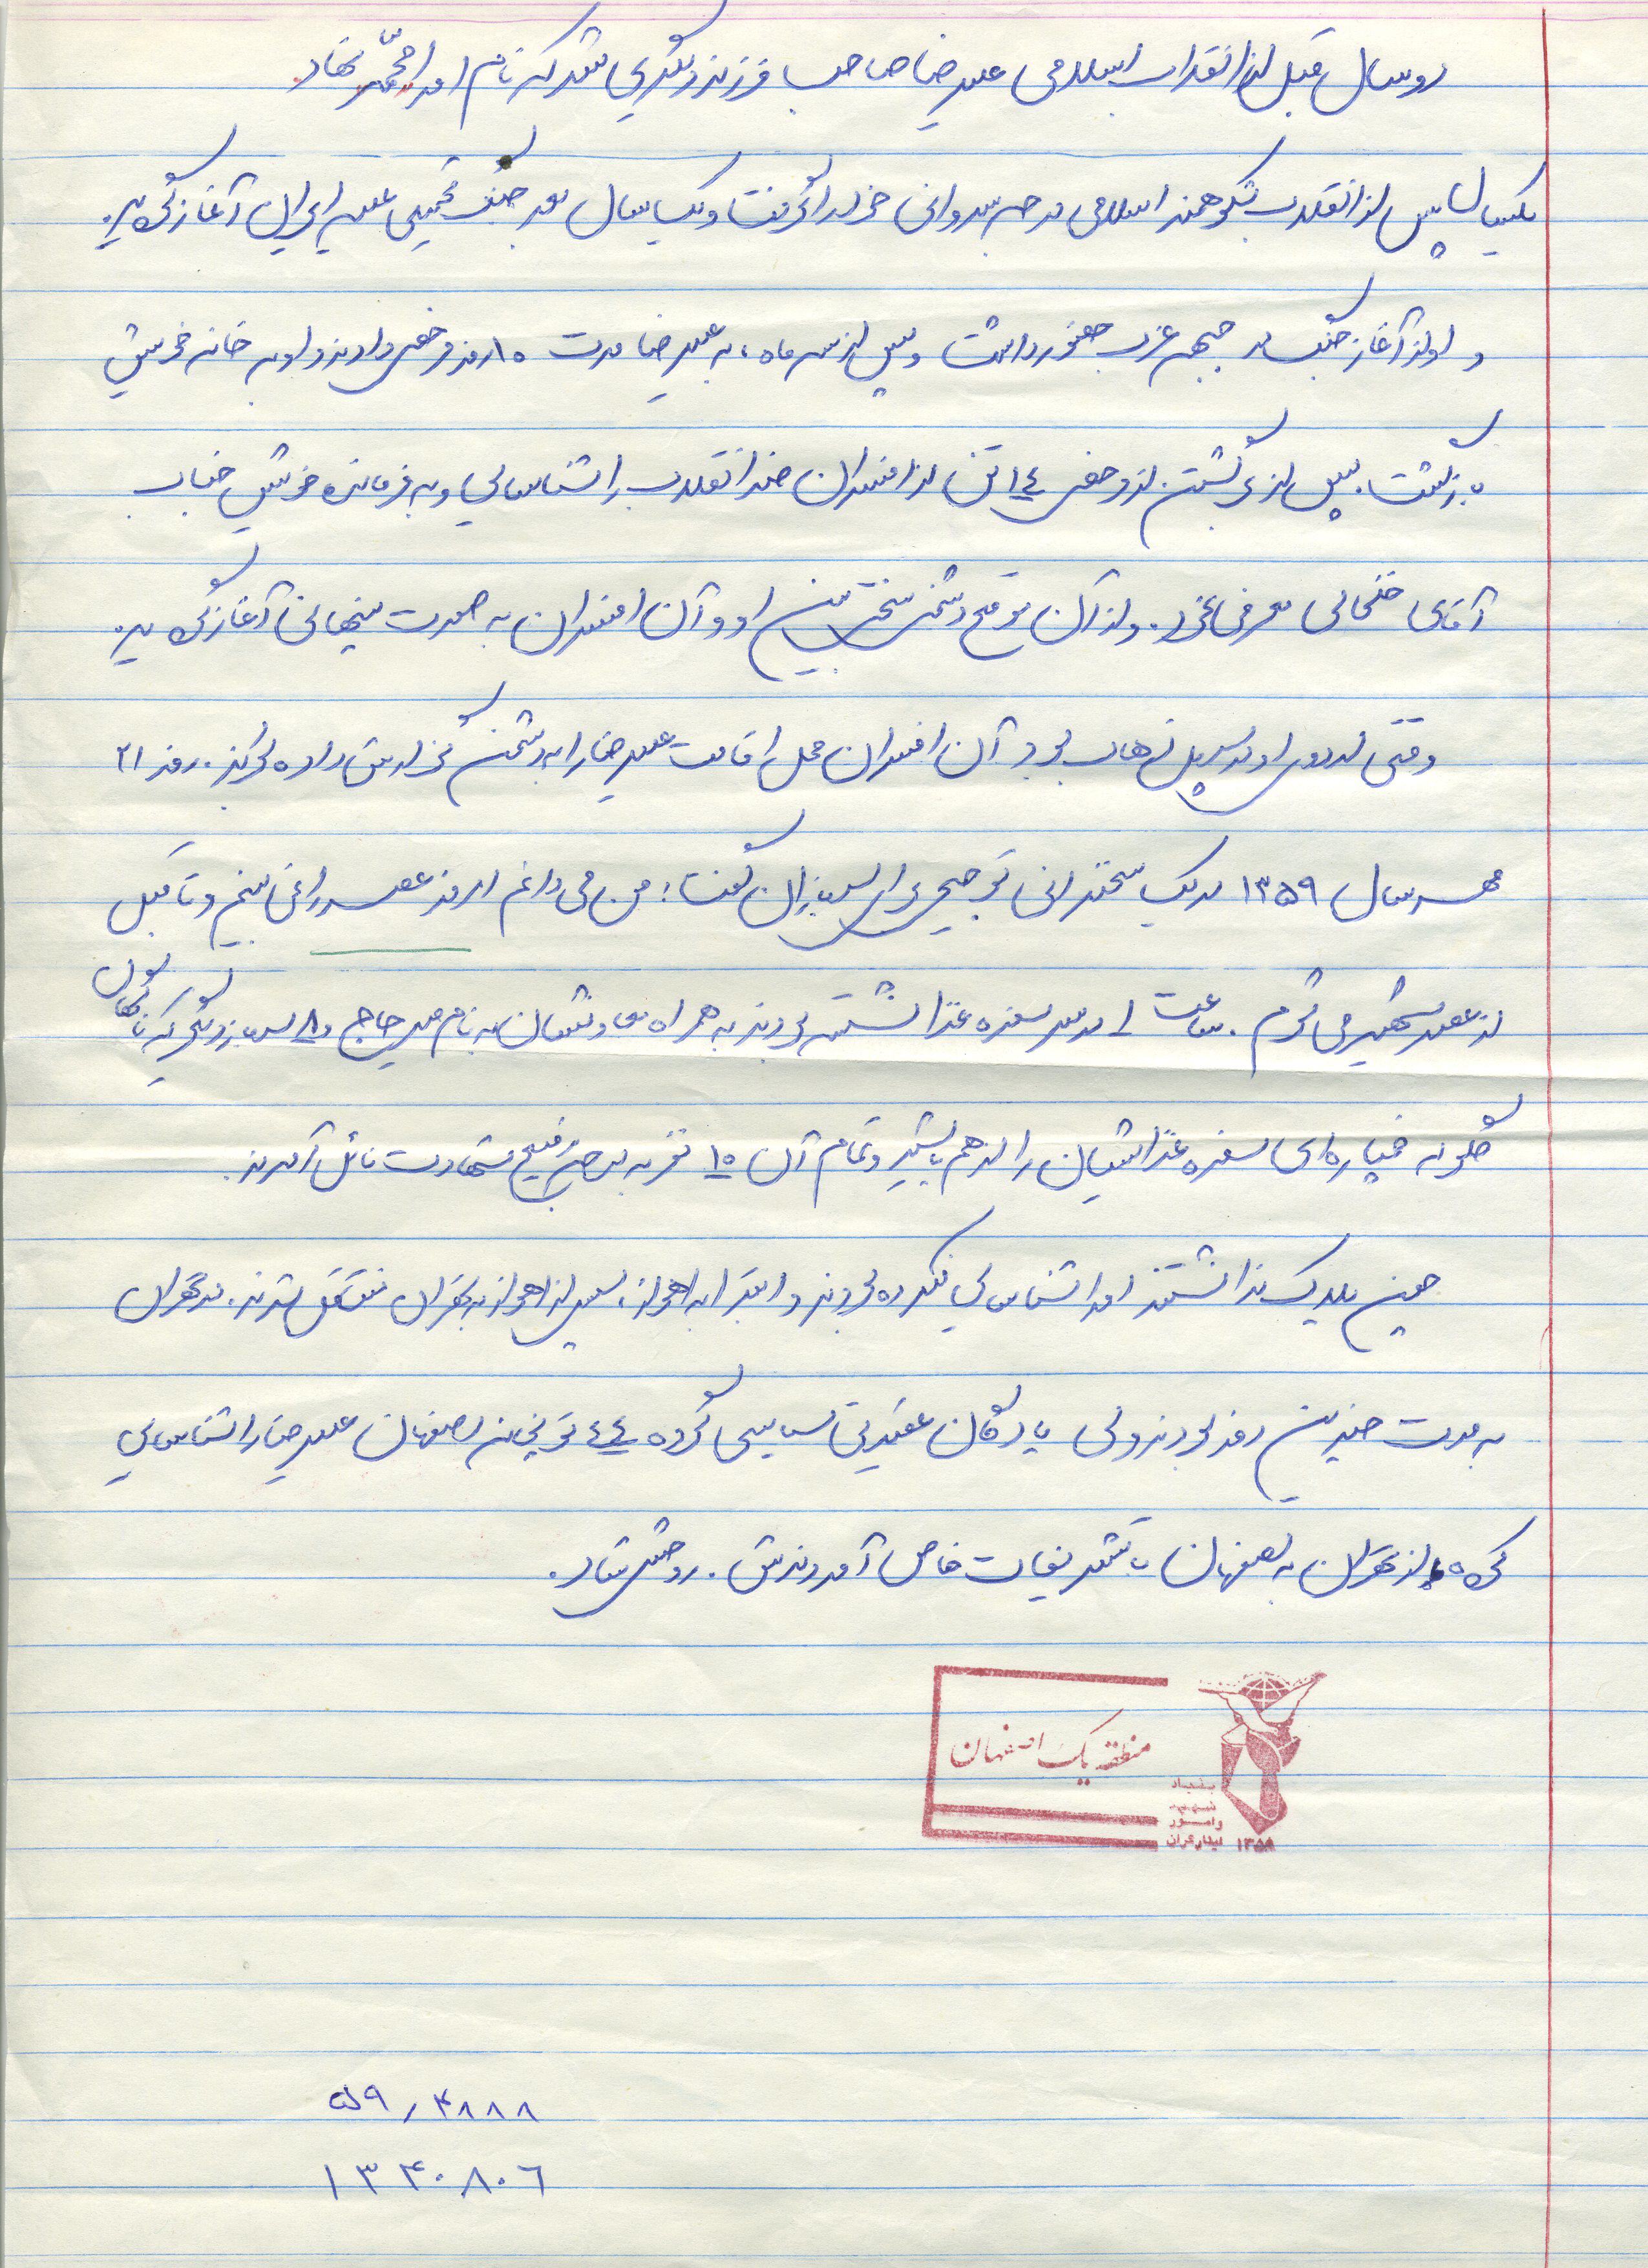 دو سال قبل از انقلاب اسلامی علیرضا صاحب فرزند دیگری شد که نام او را محمّد نهاد.
یکسال پس از انقلاب شکوهمند اسلامی درجه ستوانی خود را گرفت و یکسال بعد جنگ تحمیلی علیه ایران آغاز گردید.
و او از آغاز جنگ در جبهه غرب حضور داشت و پس از سه ماه، به علیرضا مدت ۱۰ روز مرخصی دادند و او به خانه خویش
بازگشت. پس از برگشتن از مرخصی ١٤ تن از افسران ضد انقلاب را شناسایی و به فرمانده خویش جناب
آقای معرفی نمود. و از آن موقع دشمنی سختی بین او و آن افسران به صورت پنهانی آغاز گردید.
وقتی اردوی او در سرپل ذهاب بود آن افسران محل اقامت علیرضا را به دشمن گزارش داده بودند. روز ۲۱
مهر سال ۱۳۵۹ در یک سخنرانی توجیهی برای سربازان گفت: من می دانم امروز عصر را نمی بینم و تا قبل
از عصر شهید می شوم. ساعت ۱ در سر سفره غذا نشسته بودند به همراه معاونشان به نام میرحاج و ۸ سرباز دیگر که ناگهان
گلوله خمپاره ای سفره غذایشان را از هم پاشید و تمام آن ۱۰ نفر به درجه رفیع شهادت نائل آمدند.
چون پلاک نداشتند او را شناسایی نکرده بودند و ابتدا به اهواز، سپس از اهواز به تهران منتقل شدند. در تهران
به مدت چندین روز بودند ولی پادگان عقیدتی سیاسی گروه ٤٤ توپخانه اصفهان علیرضا را شناسایی
کرده از تهران به اصفهان با تشریفات خاص آوردندش. روحش شاد.
منطقه یک اصفهان
بنیاد
شهید
و امور
ایثارگران ۱۳۵۸
۵۹/۴۸۸۸
۱۳۴۰۸۰٦